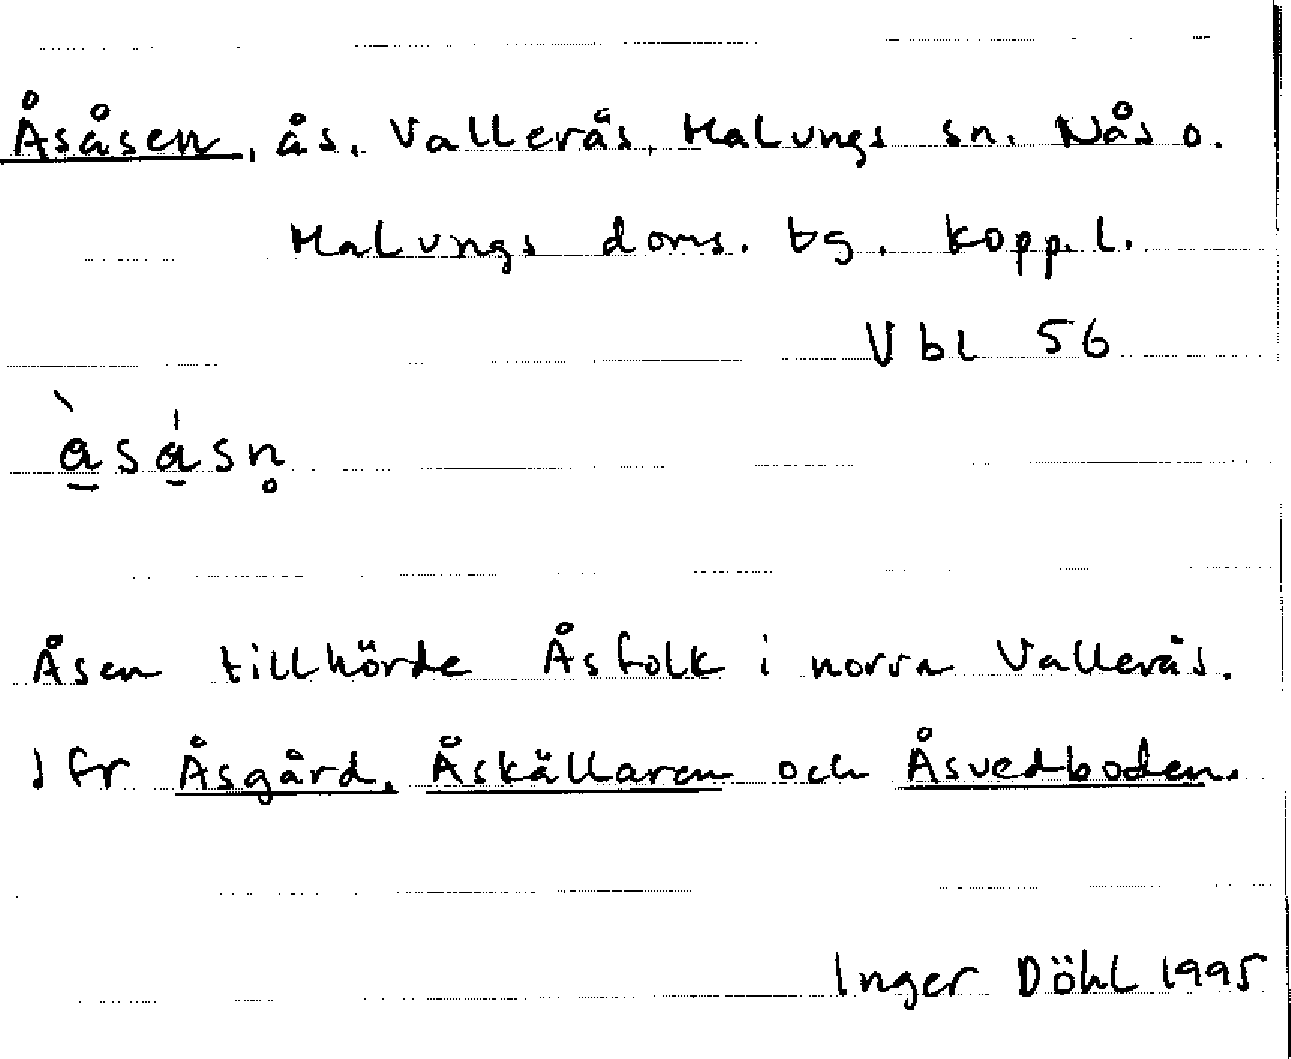 Åsåsen, ås, Vallerås, Malungs sn. Nås o.
Malungs doms. tg. Kopp. l.
Vbl 56
à̱sa̱̍sn̥
Åsen tillhörde Åsfolk i norra Vallerås.
Jfr Åsgård, Åskällaren och Åsvedboden.
Inger Döhl 1995